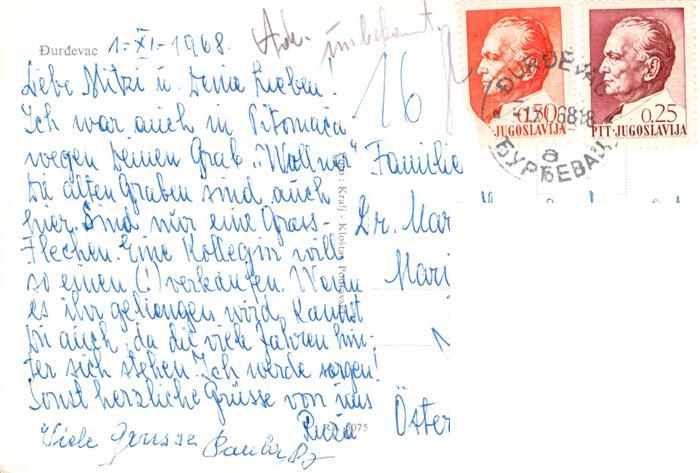 Đurđevac 1-XI-1968.
Adr. unbekannt
Liebe Mitzi u. Deine Lieben!
Ich war auch in Pitomača
wegen Deinen Grab. "Wollner"
Die alten Graben sind auch
hier. Sind nur eine Grass-
Flechen. Eine Kollegin will
so einen (!) verkaufen. Wenn
es ihr gelingen wird, kannst
Du auch, da die viele Jahren hin-
ter sich stehen. Ich werde sorgen!
Sonst herzliche Grüsse von uns
Ruža
Viele Grüsse
16
Familie
Dr. Mar
Mari
Öster
Foto: Kralj - Kloštar Podravski
5075
0.50
JUGOSLAVIJA
0.25
PTT-JUGOSLAVIJA
ĐURĐEVAC
68 18
a
ЂУРЂЕВАЦ